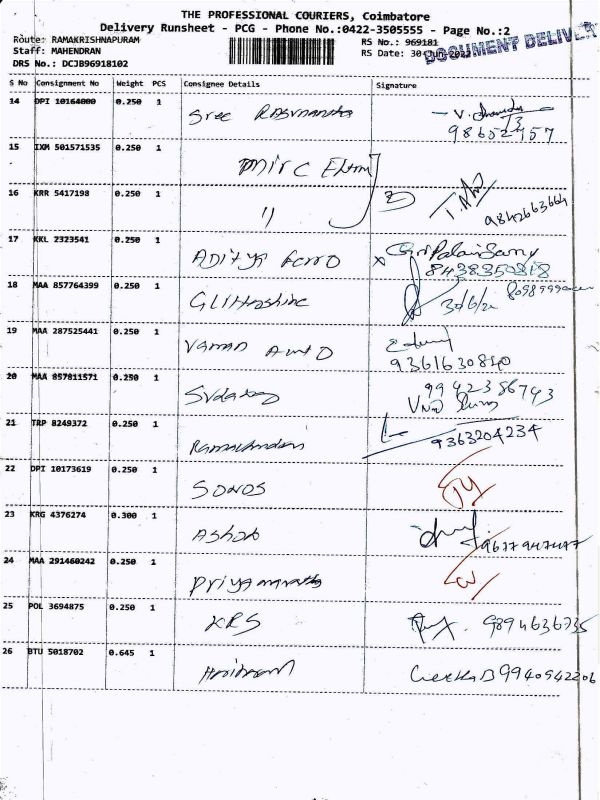 THE PROFESSIONAL COURIERS, Coimbatore
Delivery Runsheet - PCG - Phone No.:0422-3505555 - Page No.:2
Route: RAMAKRISHNAPURAM RS No.: 969181
Staff: MAHENDRAN RS Date: 30-Jun-2022
DOCUMENT DELIVER
DRS No.: DCJB96918102
S No Consignment No Weight PCS Consignee Details Signature
14 DPI 10164000 0.250 1 Sree
15 IXM 501571535 0.250 1
16 KRR 5417198 0.250 1 " 9842663664
17 KKL 2323541 0.250 1 Aditya Ferro
8438350818
18 MAA 857764399 0.250 1 30/6/22
19 MAA 287525441 0.250 1 Vaman Auto
9361630840
20 MAA 857811571 0.250 1 9942386743
21 TRP 8249372 0.250 1 9363204234
22 DPI 10173619 0.250 1 SONOS
23 KRG 4376274 0.300 1 Ashok 9677947477
24 MAA 291460242 0.250 1
25 POL 3694875 0.250 1 KRS 9894636735
26 BTU 5018702 0.645 1 Hariram 9940942206